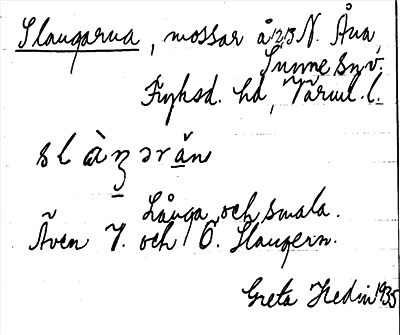 Slangarna, mossar å 25 N. Åna,
Sunne sn v.
Fryksd. hd, Värml. l.
slàŋərä̀n
Långa och smala.
Även 7. och 8. Slangern.
Greta Hedin 1935